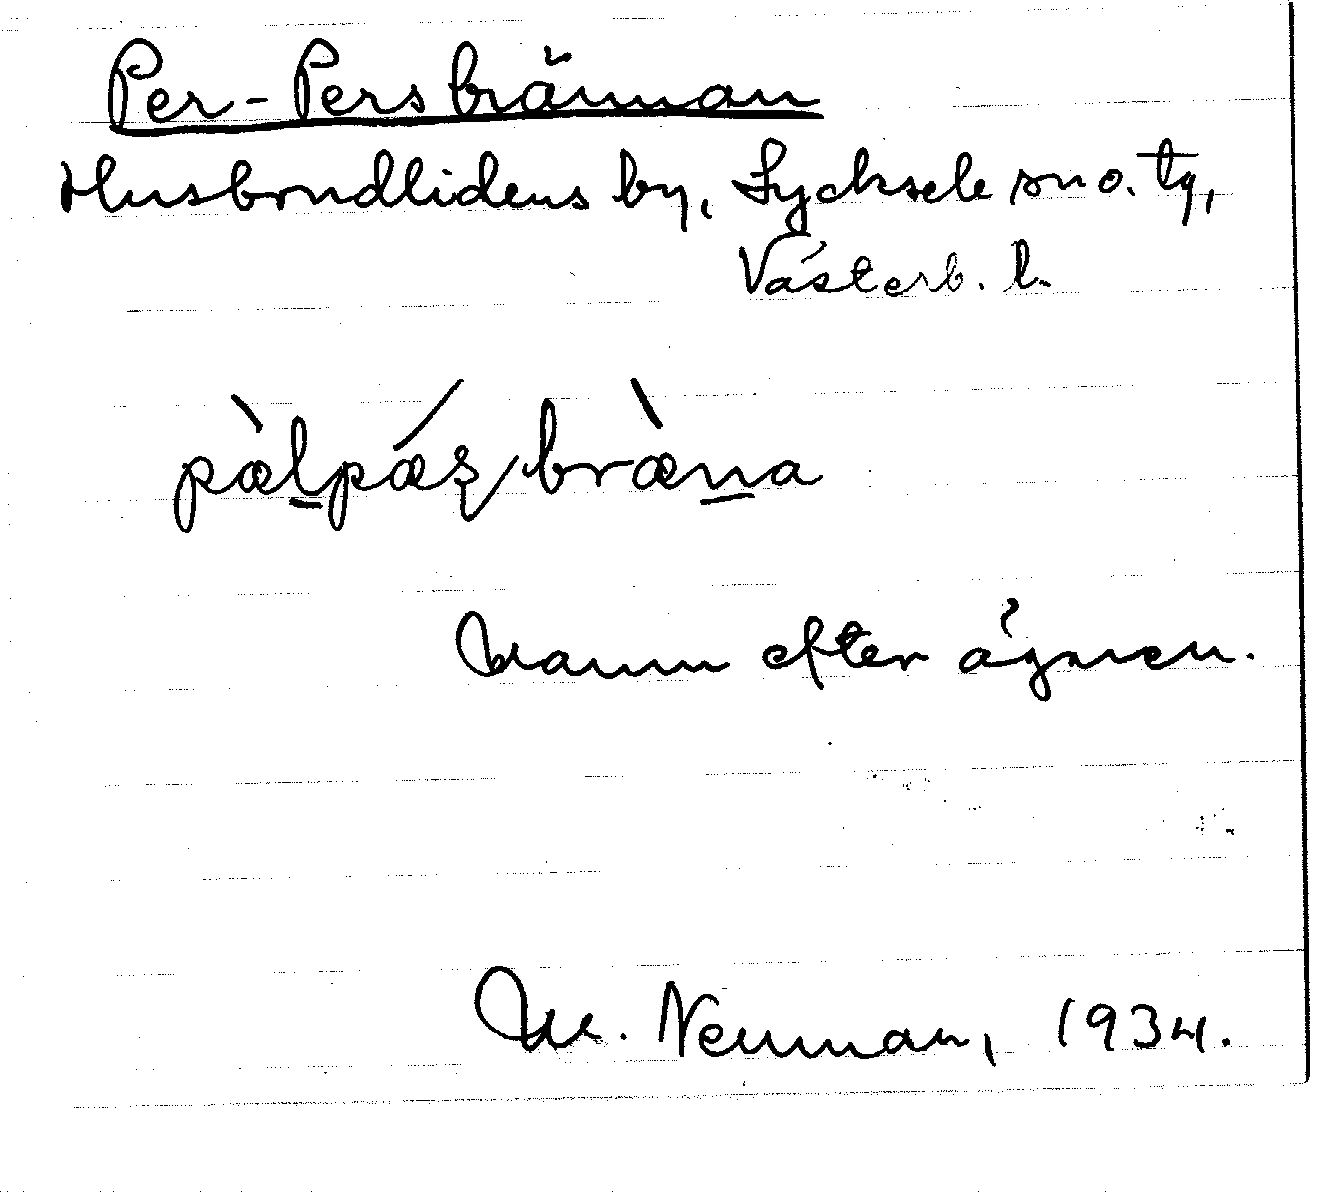 Per-Persbrännan
Husbondlidens by, Lycksele sn o. tg,
Västerb. l.
pæ̀l̠pǽʂbræ̀n̠a
Namn efter ägaren.
M. Neuman, 1934.